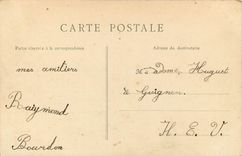 CARTE POSTALE
Partie réservée à la correspondance
Adresse du destinataire
mes amitiers
Raymond
Bourdon
Dame Huguet
de Guignen
H. E. V.